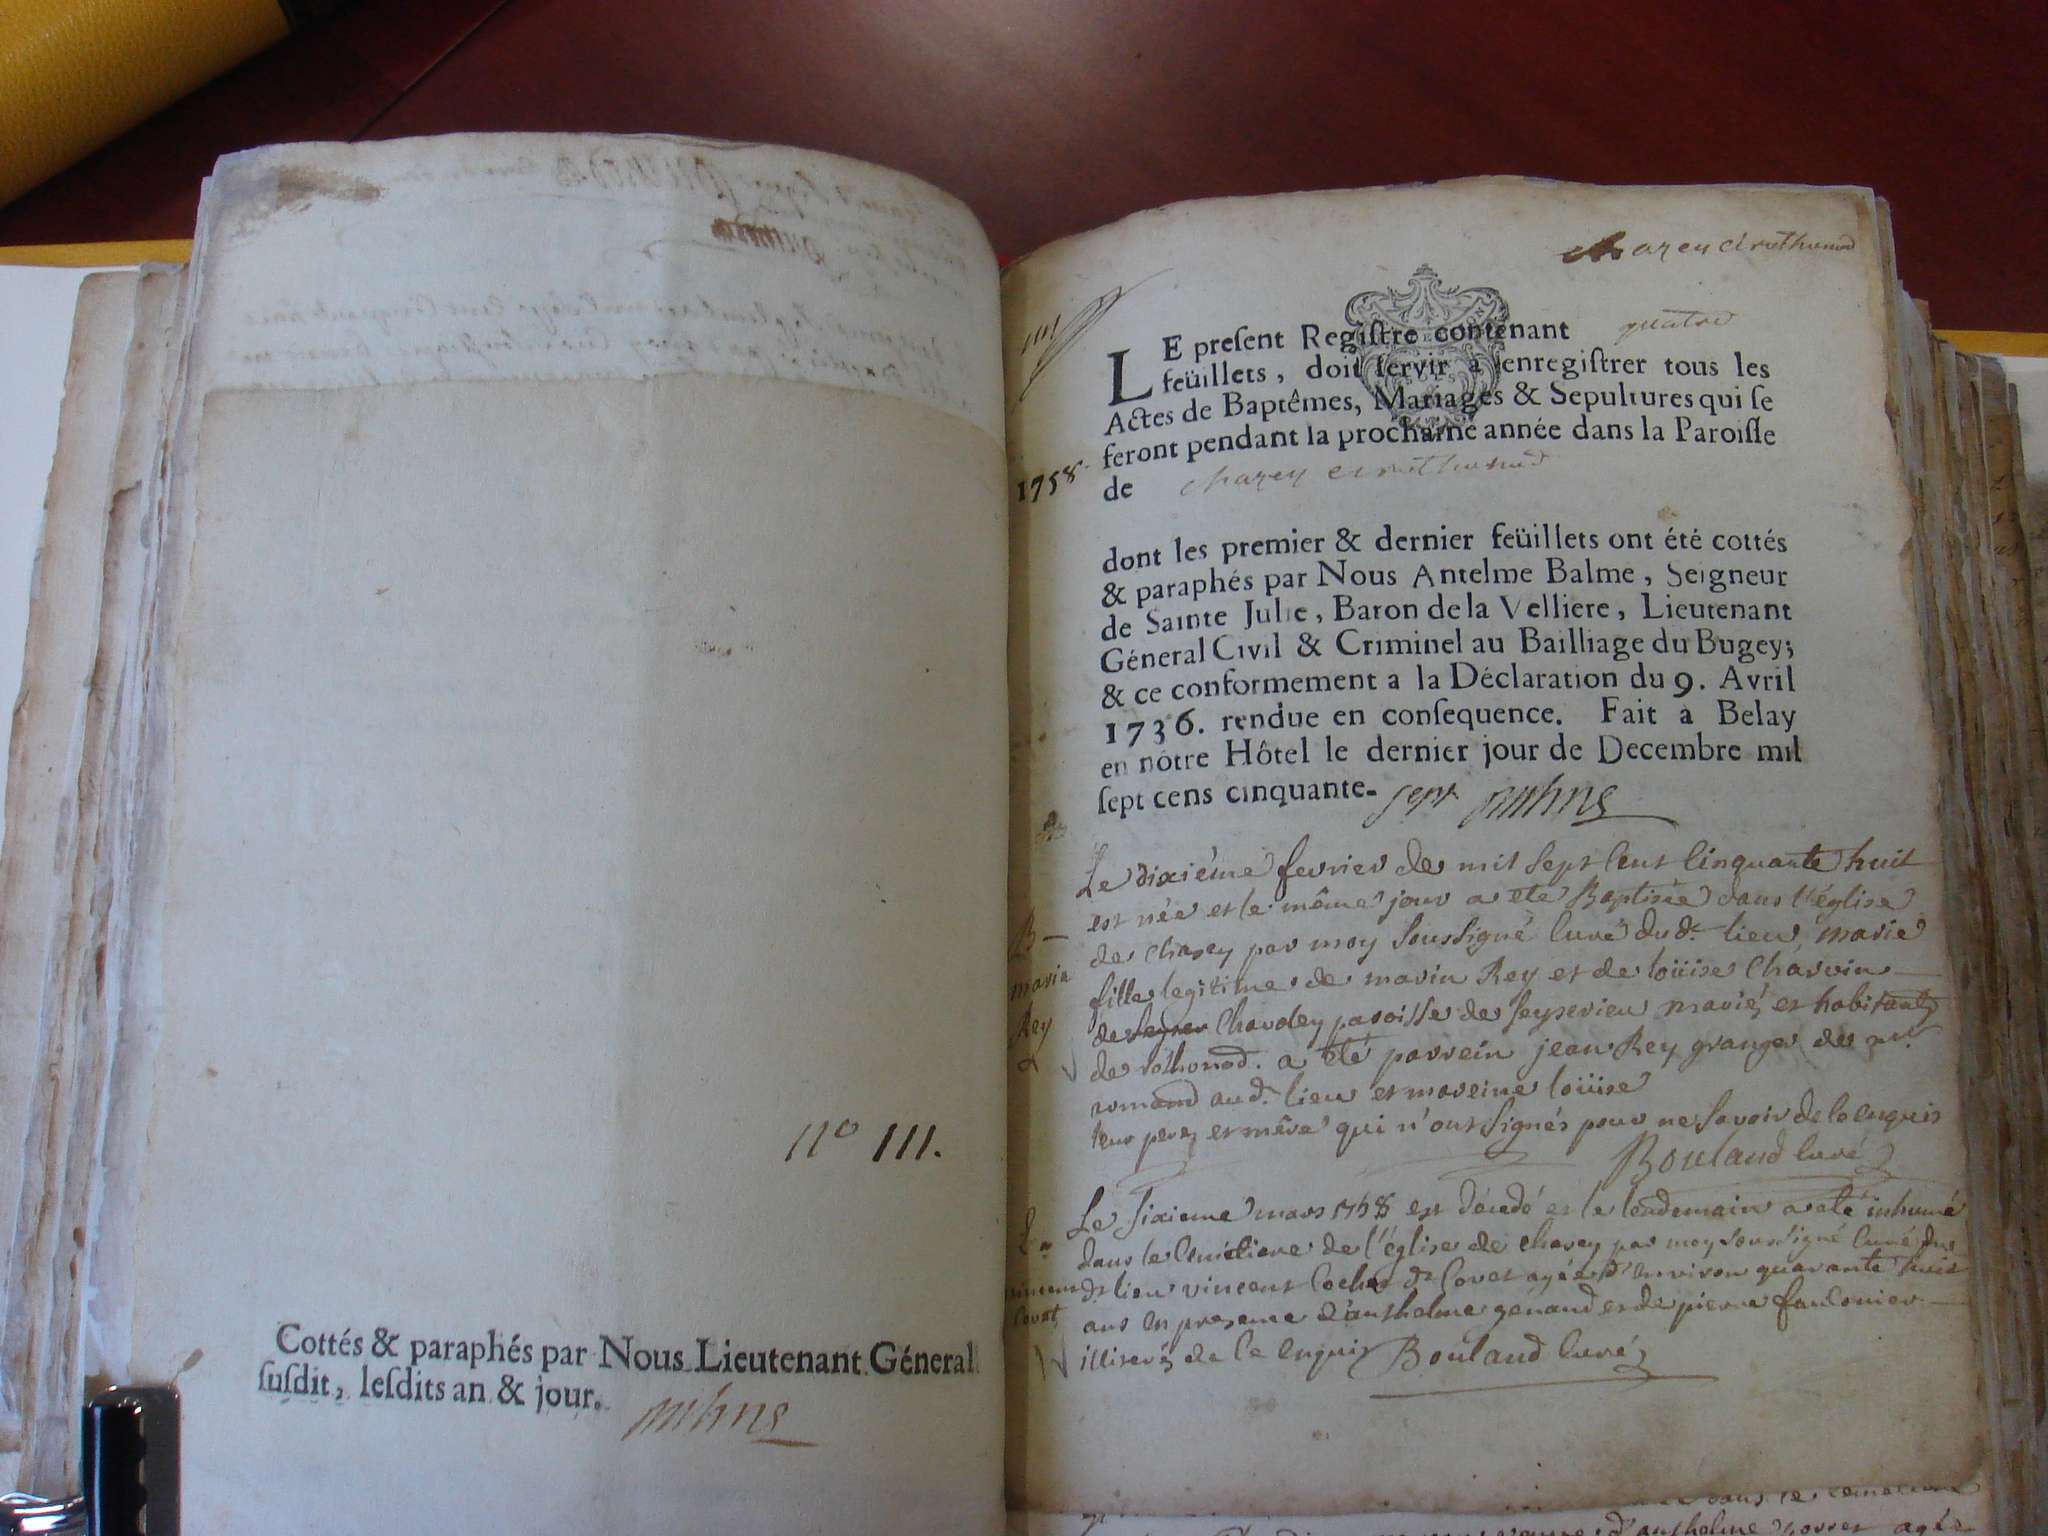 n° 111.
Cottés & paraphés par Nous Lieutenant Géneral
ſuſdit, leſdits an & jour.
chazey et rothonod
LE preſent Regiſtre contenant quatre
feüillets, doit ſervir à enregiſtrer tous les
Actes de Baptêmes, Mariages & Sepultures qui ſe
feront pendant la prochaine année dans la Paroiſſe
1758.
de chazey et rothonod
dont les premier & dernier feüillets ont été cottés
& paraphés par Nous Antelme Balme, Seigneur
de Sainte Julie, Baron de la Velliere, Lieutenant
Géneral Civil & Criminel au Bailliage du Bugey;
& ce conformement a la Déclaration du 9. Avril
1736. rendue en conſequence. Fait a Belay
en nôtre Hôtel le dernier jour de Decembre mil
ſept cens cinquante-sept
Le dixiéme fevrier de mil sept cent cinquante huit
est née et le même jour a eté Baptisée dans l'église
de chazey par moy soussigné curé du d. lieu, marie
fille legitime de marin Rey et de loüise charvin
de chavoley paroisse de seyserieu mariéz et habitantz
de rothonod. a été parrein jean Rey granger de mr.
romand aud. lieu et mareine loüise
leur perez et mére qui n'ont signés pour ne savoir de ce enquis
Bouland curé
B
maria
Rey
Le sixieme mars 1758 est décédé et le lendemain a eté inhumé
dans le cimetiere de l'église de chazey par moy soussigné curé du
d. lieu vincent cochet dt covet agée d'environ quarante huit
ans en presence d'anthelme génand et de pierre fauconier
illiterés de ce enquis Bouland curé
vincent
Covet